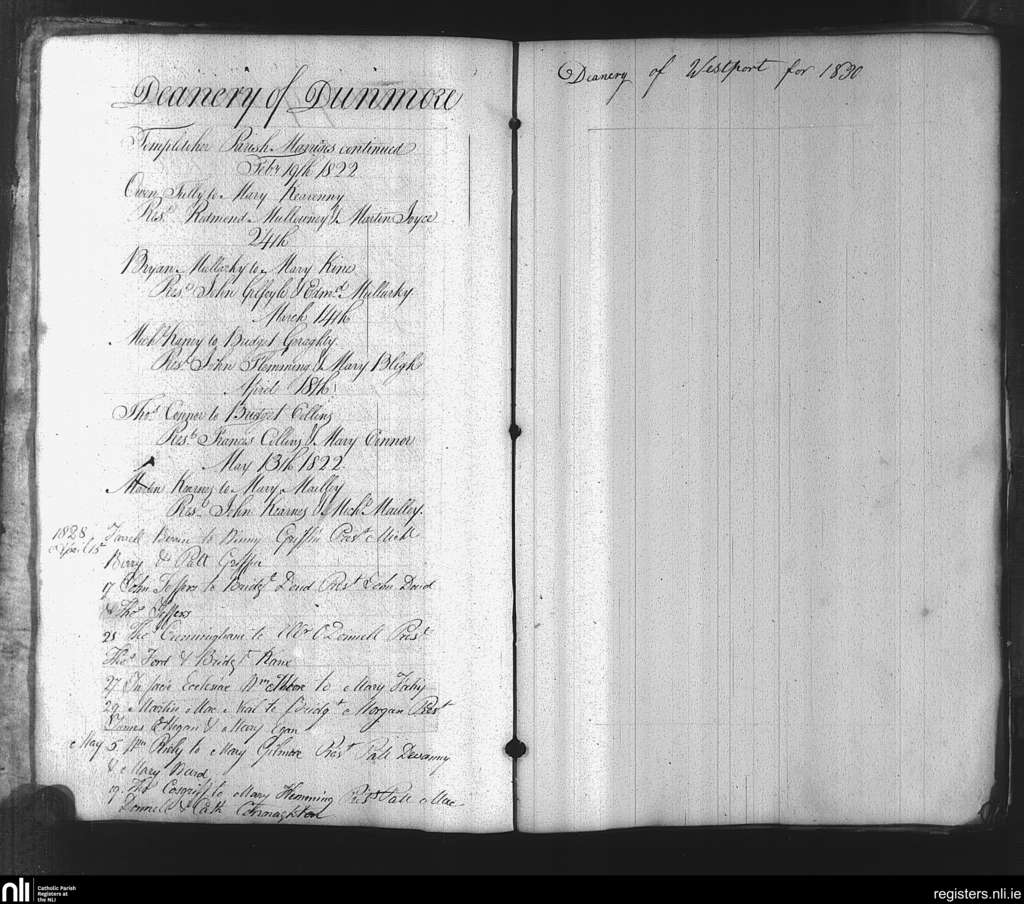 Deanery of Dunmore
Parish Marriages continued
Feby 19th 1822
Owen Tully to Mary Keavenny
Rest. Redmond Mullowney & Martin Joyce
24th
Bryan Mullarky to Mary Kine
Rest. John Gilfoyle & Edmd. Mullarky
March 14th
Michl. Kaney to Bridget Geraghty.
Rest. John Flemming & Mary Bligh
April 18th
Thos. Connor to Bridget Collins
Rest. Francis Collins & Mary Connor
May 13th 1822
Martin Kearns to Mary Mailley
Rest. John Kearns & Michl. Mailley.
1828
April 15
to Griffin Prest. Michl
Berry & Patt
17 John Jeffers to Bridgt. Prest. John
& Thos. Jeffers
25 Thos. Cunningham to O Donnell Prest.
Thos. Ford & Bridgt. Kane
27 In facie Ecclesiae Wm to Mary Fahy
29 Martin Mac to Bridgt. Morgan Prest.
James & Mary Egan
May 5 Wm to Mary Gilmore Prest. Patt Devanny
& Mary
19 Thos. to Mary Hemming Prest. Patt Mac
Donnell & Cath
Deanery of Westport for 1830
nli
Catholic Parish
Registers at
the NLI
registers.nli.ie